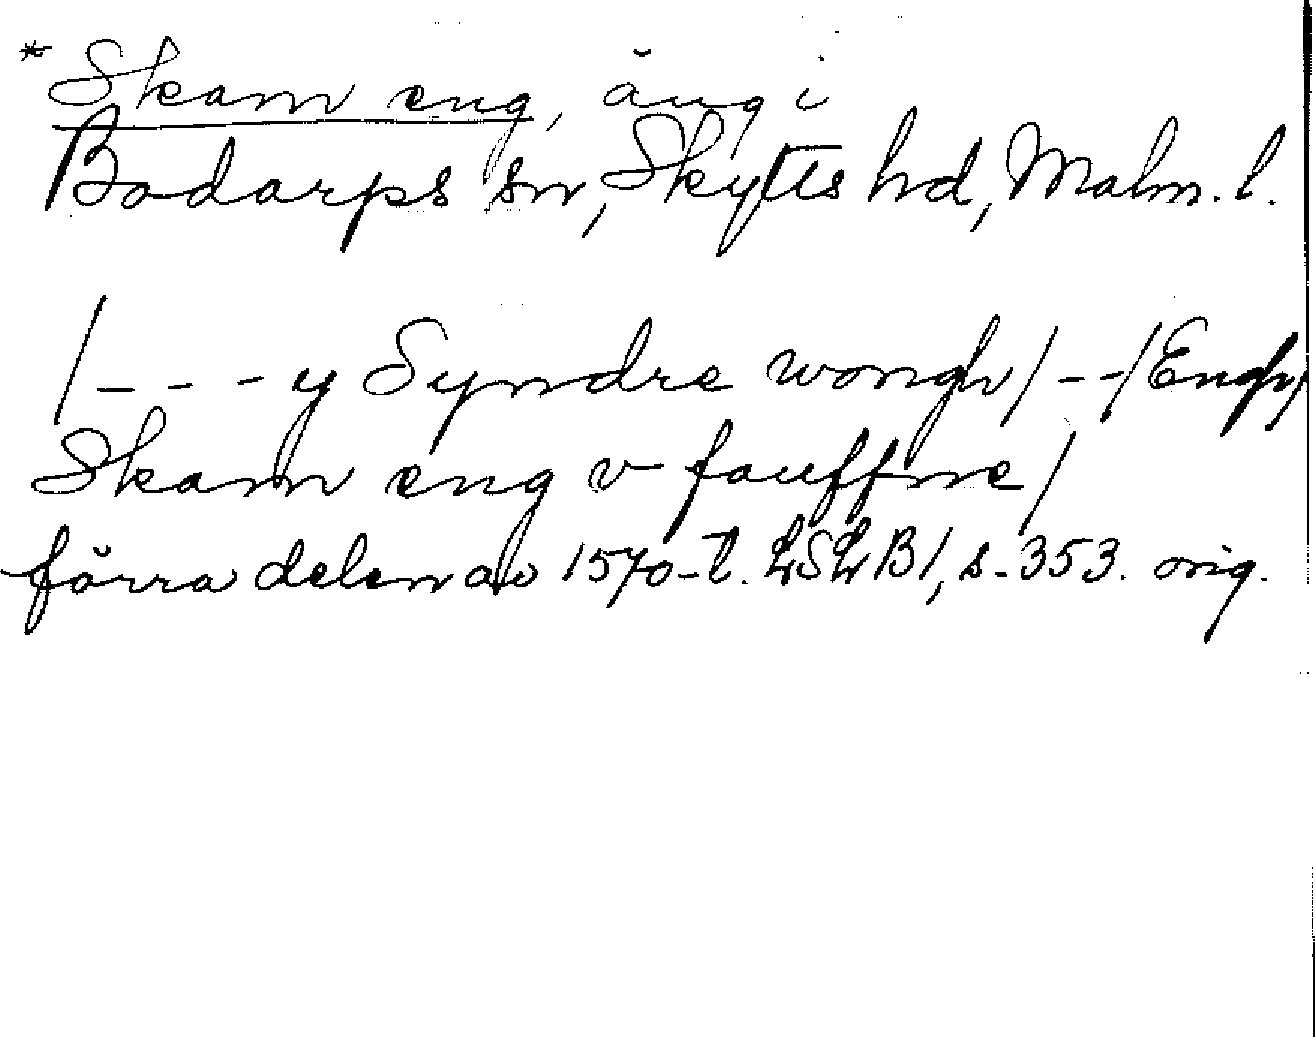 * Skam eng, äng i
Bodarps sn, Skytts hd, Malm. l.
/--- y Syndre wongh/--/Engh/
Skam eng v fauffne/
förra delen av 1570-t. LSLB1, s. 353. orig.